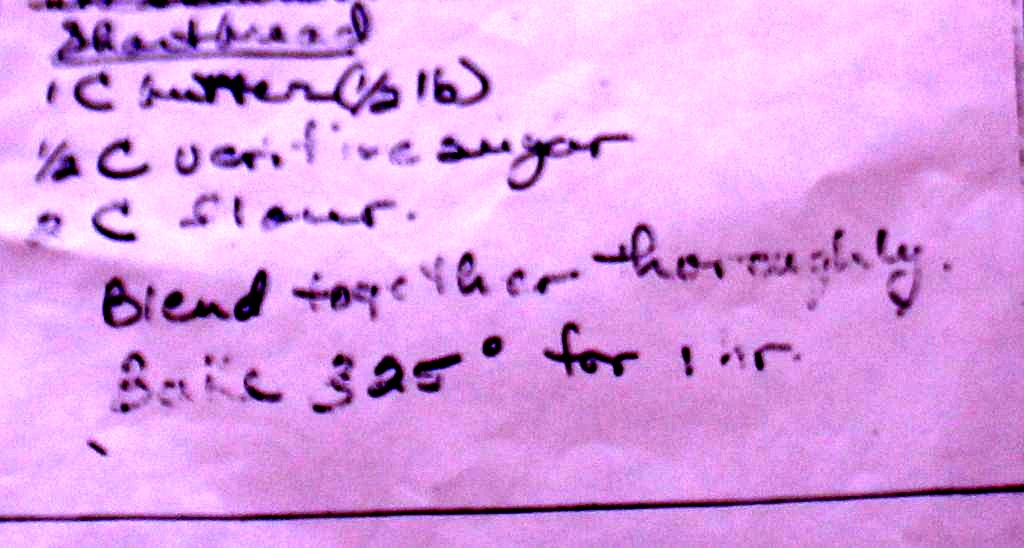 Shortbread
1 C butter (1/2 lb)
1/2 C veri fine sugar
2 C flour.
Blend together thoroughly.
Bake 325° for 1 hr.